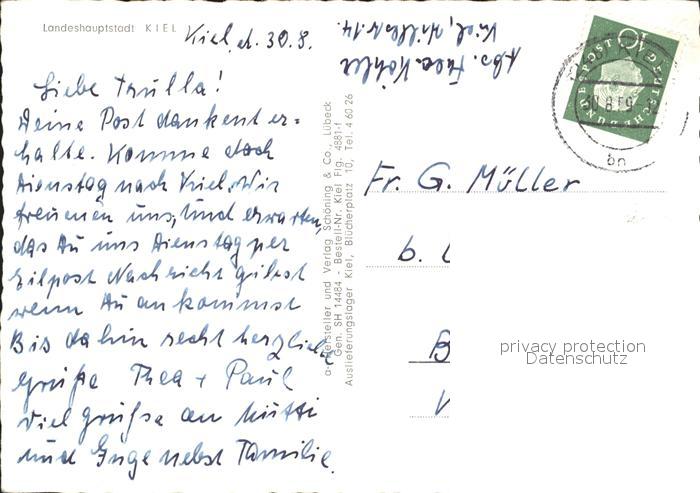 Landeshauptstadt KIEL
Kiel, d. 30.8.
Liebe Trulla!
Deine Post dankend er=
halte. Komme doch
Dienstag nach Kiel. Wir
freuenen uns, und erwarten,
das Du uns Dienstag per
Eilpost Nachricht gibst
wenn Du ankommst
Bis dahin recht herzliche
Grüße Thea + Paul
Viel grüße an Mutti
und Inge nebst Familie.
a-Hersteller und Verlag Schöning & Co., Lübeck
Gen. SH 14484 - Bestell-Nr. Kiel Flg. 4881-f
Auslieferungslager Kiel, Blücherplatz 10, Tel. 4 60 26
Abs. Thea Köhler
Kiel, 14.
DEUTSCHE BUNDESPOST
10
30.8.59
Fr. G. Müller
b.
B
V
privacy protection
Datenschutz